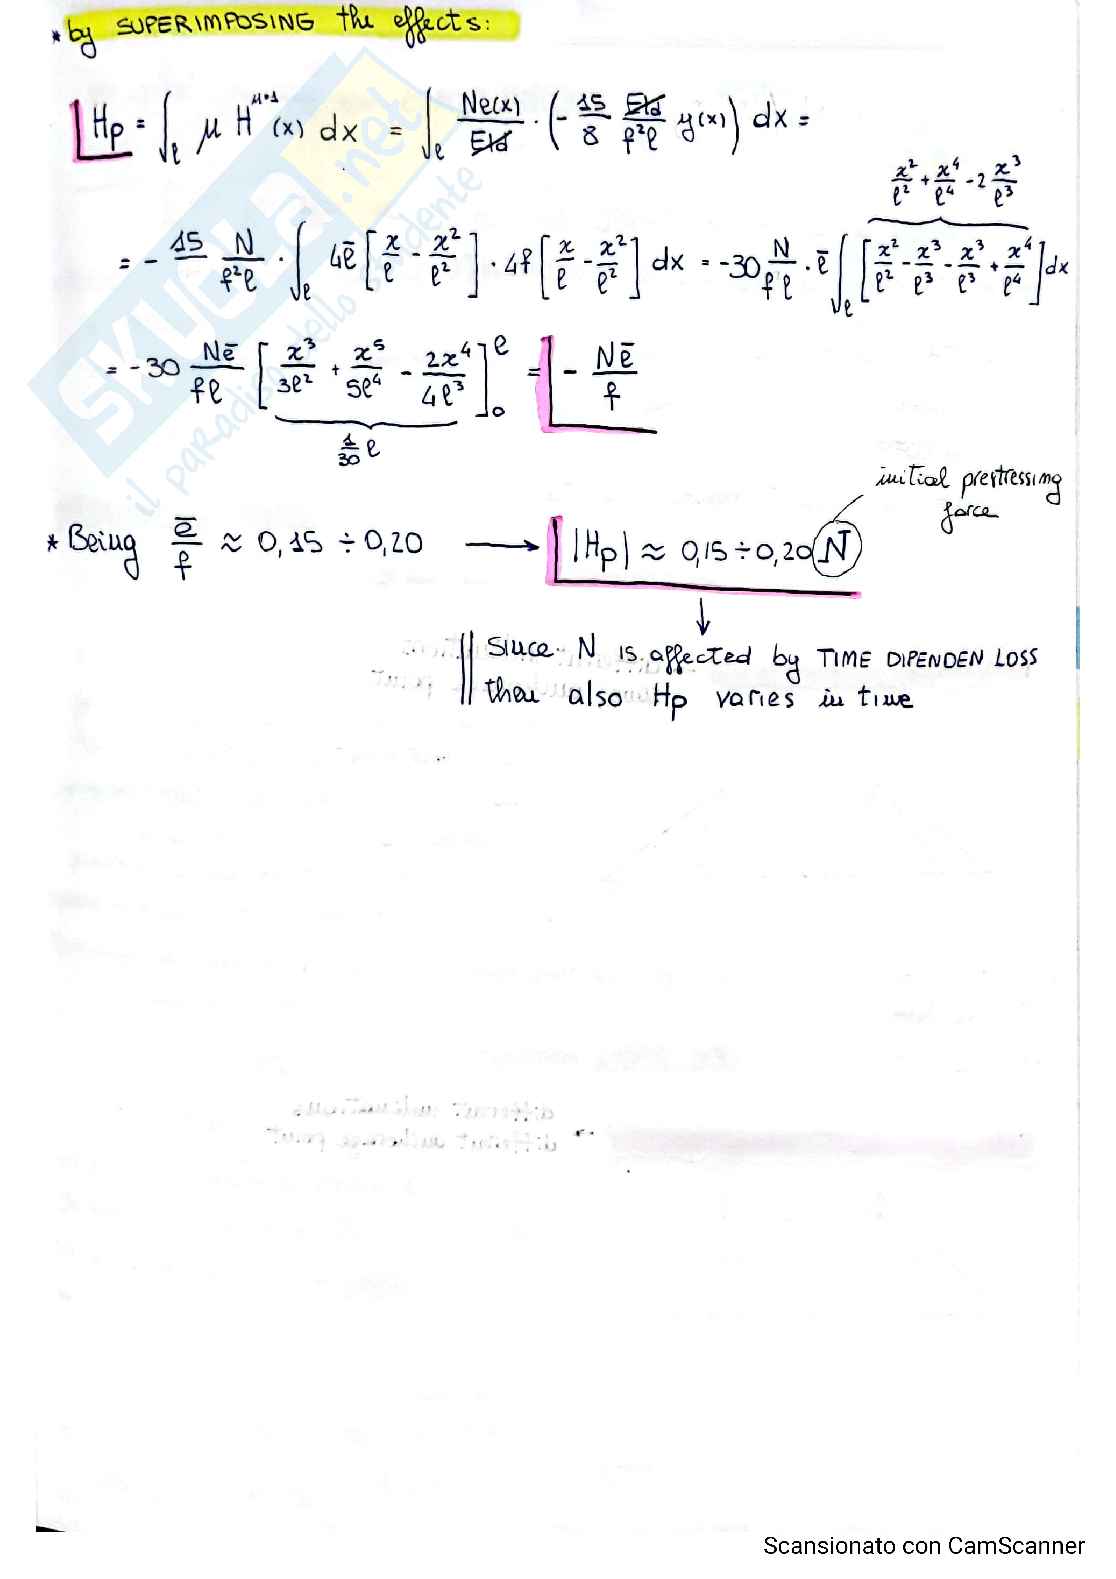 * by SUPERIMPOSING the effects:
Hp = ∫ℓ μ H^{μ=1}(x) dx = ∫ℓ Ne(x)/EId · (- 15/8 EId/f²ℓ y(x)) dx =
x²/ℓ² + x⁴/ℓ⁴ - 2 x³/ℓ³
= - 15/ N/f²ℓ · ∫ℓ 4ē [x/ℓ - x²/ℓ²] · 4f [x/ℓ - x²/ℓ²] dx = -30 N/fℓ · ē ∫ℓ [x²/ℓ² - x³/ℓ³ - x³/ℓ³ + x⁴/ℓ⁴] dx
= -30 Nē/fℓ [x³/3ℓ² + x⁵/5ℓ⁴ - 2x⁴/4ℓ³]₀^ℓ = - Nē/f
1/30 ℓ
initial prestressing
force
* Being ē/f ≈ 0,15 ÷ 0,20 → |Hp| ≈ 0,15 ÷ 0,20 N
Since N is affected by TIME DIPENDEN LOSS
then also Hp varies in time
SKUOLA.net
il paradiso dello studente
Scansionato con CamScanner